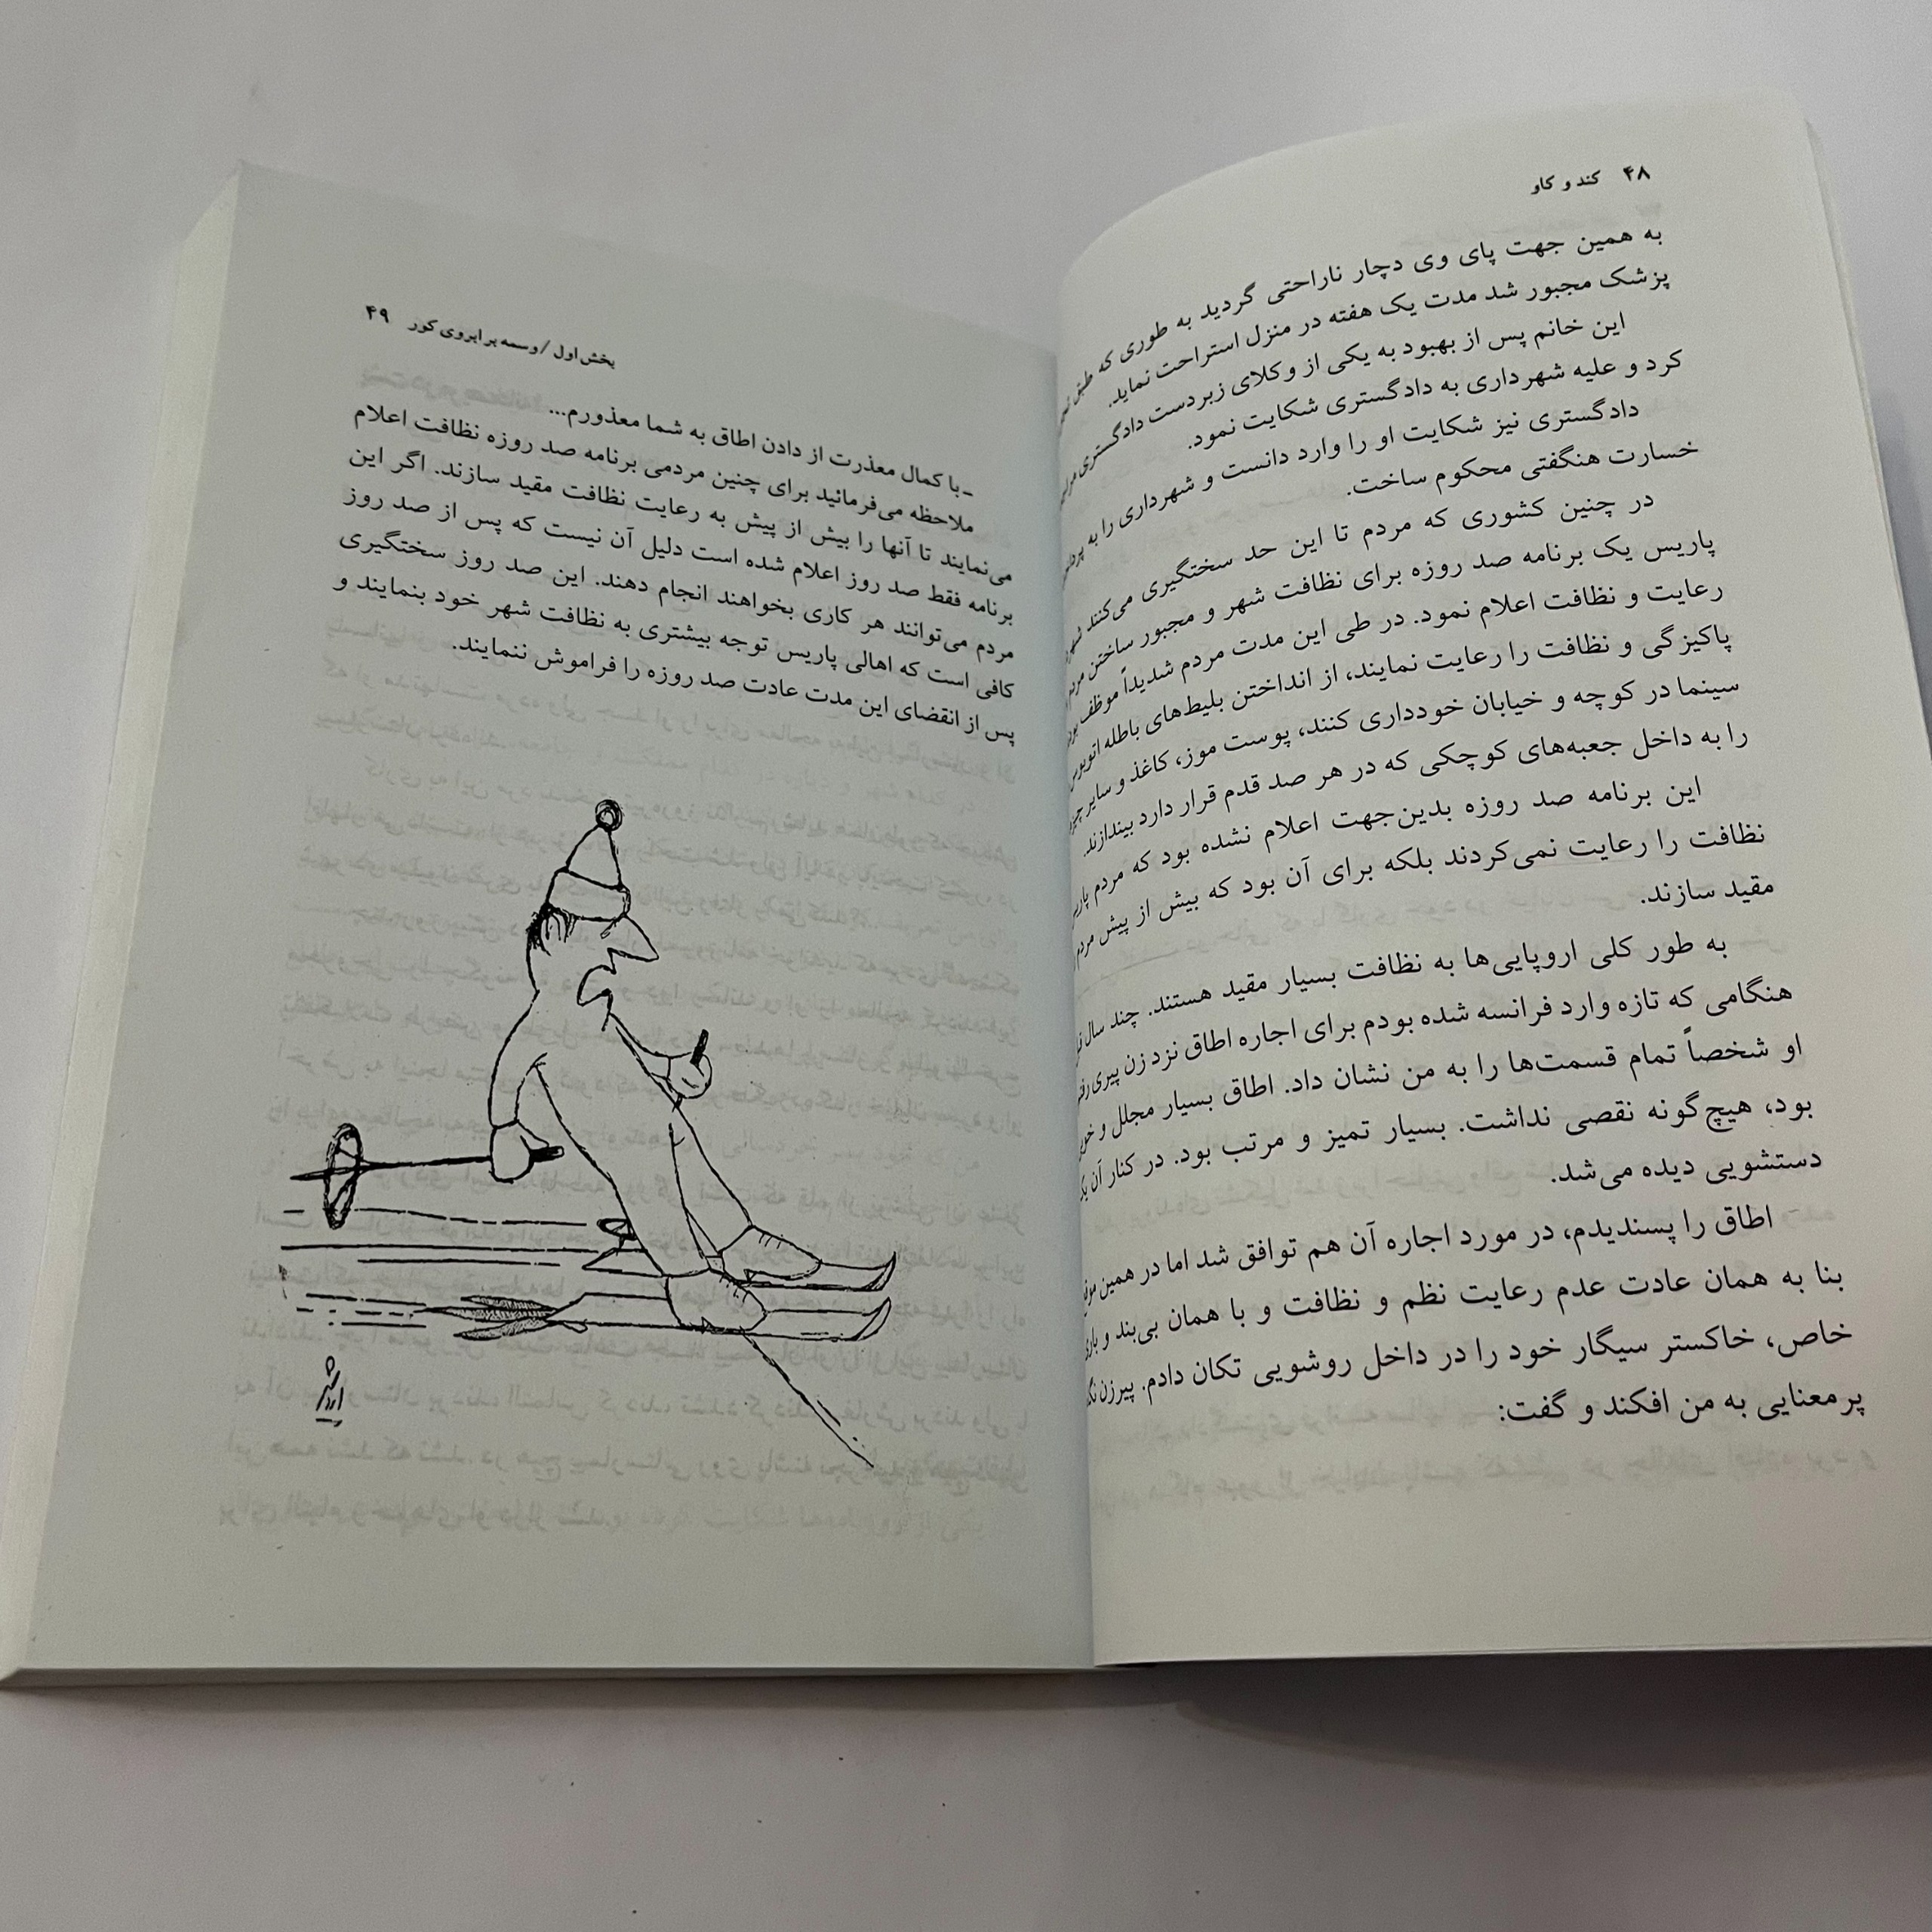 ۴۸ کند و کاو
به همین جهت پای وی دچار ناراحتی گردید به طوری که طبق
پزشک مجبور شد مدت یک هفته در منزل استراحت نماید.
این خانم پس از بهبود به یکی از وکلای زبردست دادگستری
کرد و علیه شهرداری به دادگستری شکایت نمود.
دادگستری نیز شکایت او را وارد دانست و شهرداری را به
خسارت هنگفتی محکوم ساخت.
در چنین کشوری که مردم تا این حد سختگیری می‌کنند
پاریس یک برنامه صد روزه برای نظافت شهر و مجبور ساختن
رعایت و نظافت اعلام نمود. در طی این مدت مردم شدیداً موظف
پاکیزگی و نظافت را رعایت نمایند، از انداختن بلیط‌های باطله
سینما در کوچه و خیابان خودداری کنند، پوست موز، کاغذ و سایر
را به داخل جعبه‌های کوچکی که در هر صد قدم قرار دارد بیندازند.
این برنامه صد روزه بدین‌جهت اعلام نشده بود که مردم
نظافت را رعایت نمی‌کردند بلکه برای آن بود که بیش از پیش
مقید سازند.
به طور کلی اروپایی‌ها به نظافت بسیار مقید هستند. چند سال
هنگامی که تازه وارد فرانسه شده بودم برای اجاره اطاق نزد زن پیری
او شخصاً تمام قسمت‌ها را به من نشان داد. اطاق بسیار مجلل و
بود، هیچ‌گونه نقصی نداشت. بسیار تمیز و مرتب بود. در کنار آن
دستشویی دیده می‌شد.
اطاق را پسندیدم، در مورد اجاره آن هم توافق شد اما در همین
بنا به همان عادت عدم رعایت نظم و نظافت و با همان بی‌بند و
خاص، خاکستر سیگار خود را در داخل روشویی تکان دادم. پیرزن
پرمعنایی به من افکند و گفت:
بخش اول / وسمه بر ابروی کور ۴۹
ـ با کمال معذرت از دادن اطاق به شما معذورم...
ملاحظه می‌فرمائید برای چنین مردمی برنامه صد روزه نظافت اعلام
می‌نمایند تا آنها را بیش از پیش به رعایت نظافت مقید سازند. اگر این
برنامه فقط صد روز اعلام شده است دلیل آن نیست که پس از صد روز
مردم می‌توانند هر کاری بخواهند انجام دهند. این صد روز سختگیری
کافی است که اهالی پاریس توجه بیشتری به نظافت شهر خود بنمایند و
پس از انقضای این مدت عادت صد روزه را فراموش ننمایند.